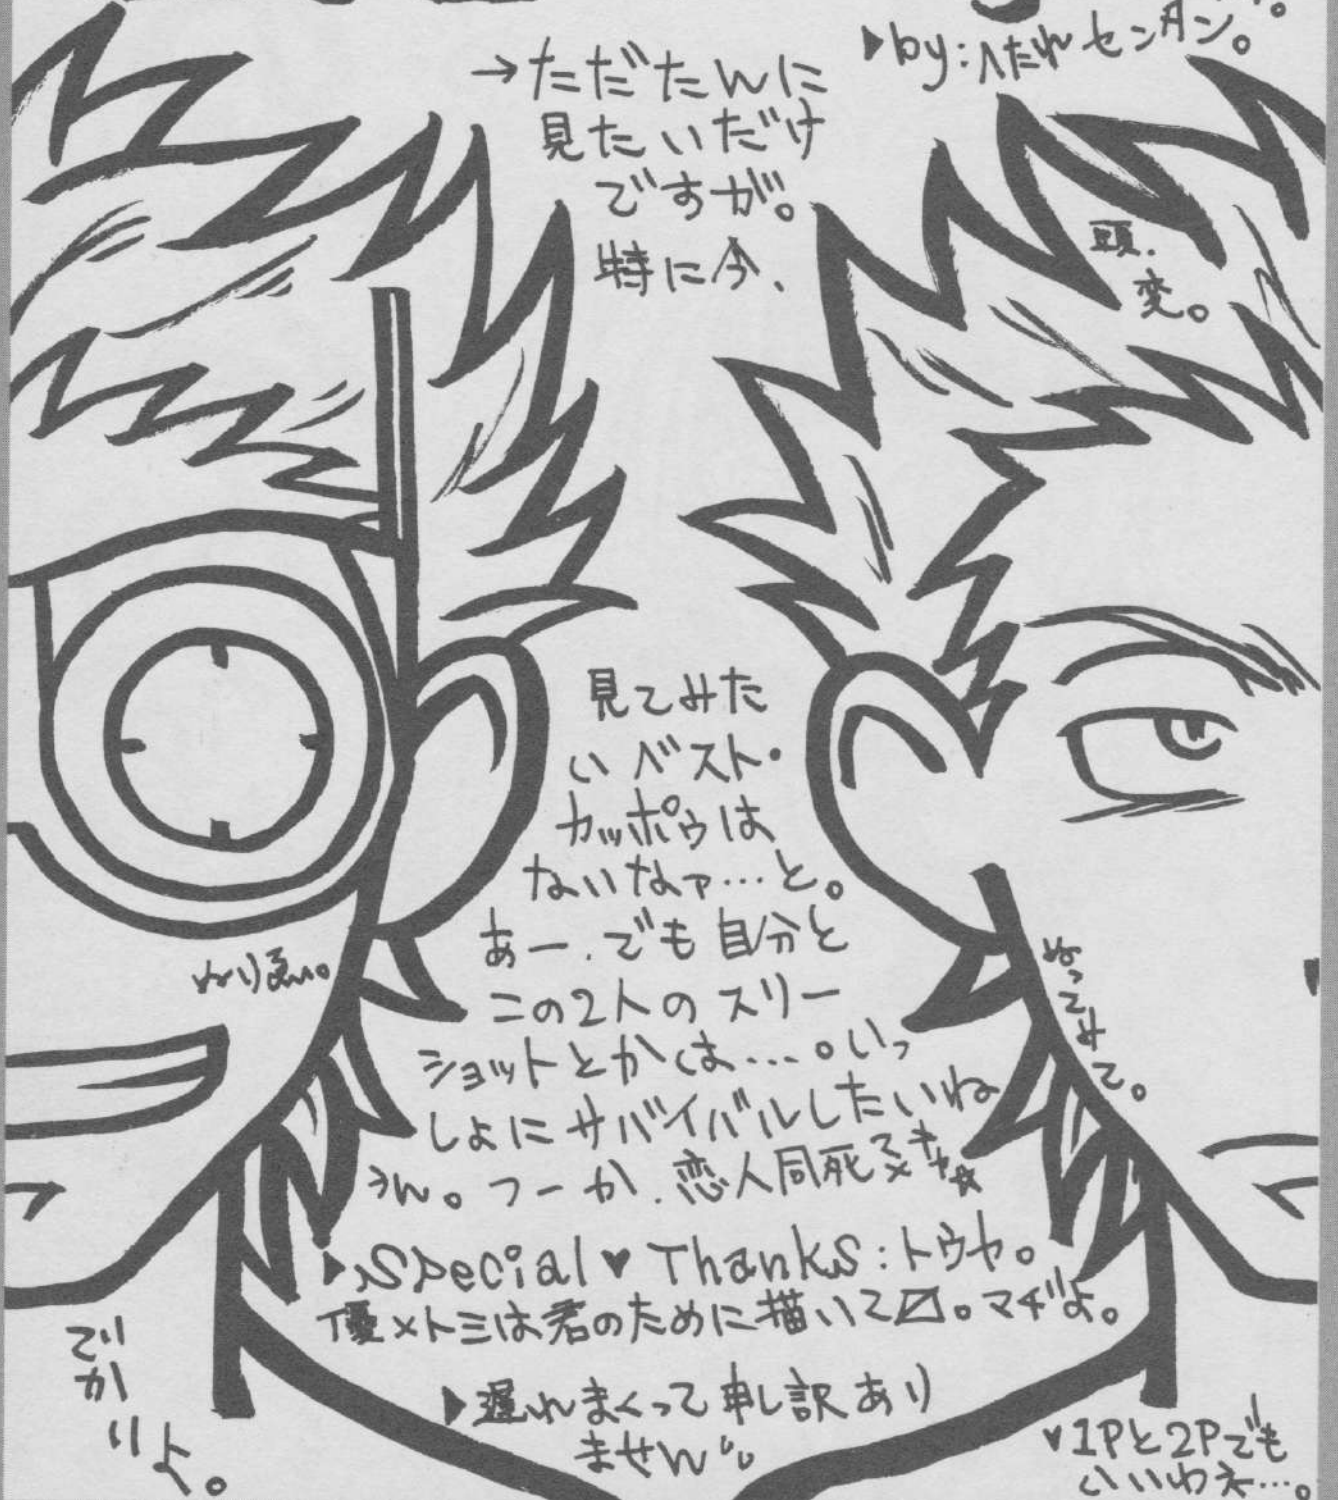 ▶by:へたれセンタン。
→ただたんに
見たいだけ
ですが。
特に今、
頭.
変。
見てみた
いベスト・
カッポゥは
ないなァ…と。
あー.でも自分と
この2人のスリー
ショットとかは…。いっ
しょにサバイバルしたいね
うん。つーか.恋人同死
キャ☆
ぬり絵。
ぬってみて。
▶Special♥Thanks:トウヤ。
優×トミは君のために描いて〼。マヂよ。
▶遅れまくって申し訳あり
ません
でか
いト。
♥1Pと2Pでも
いいわネ…。